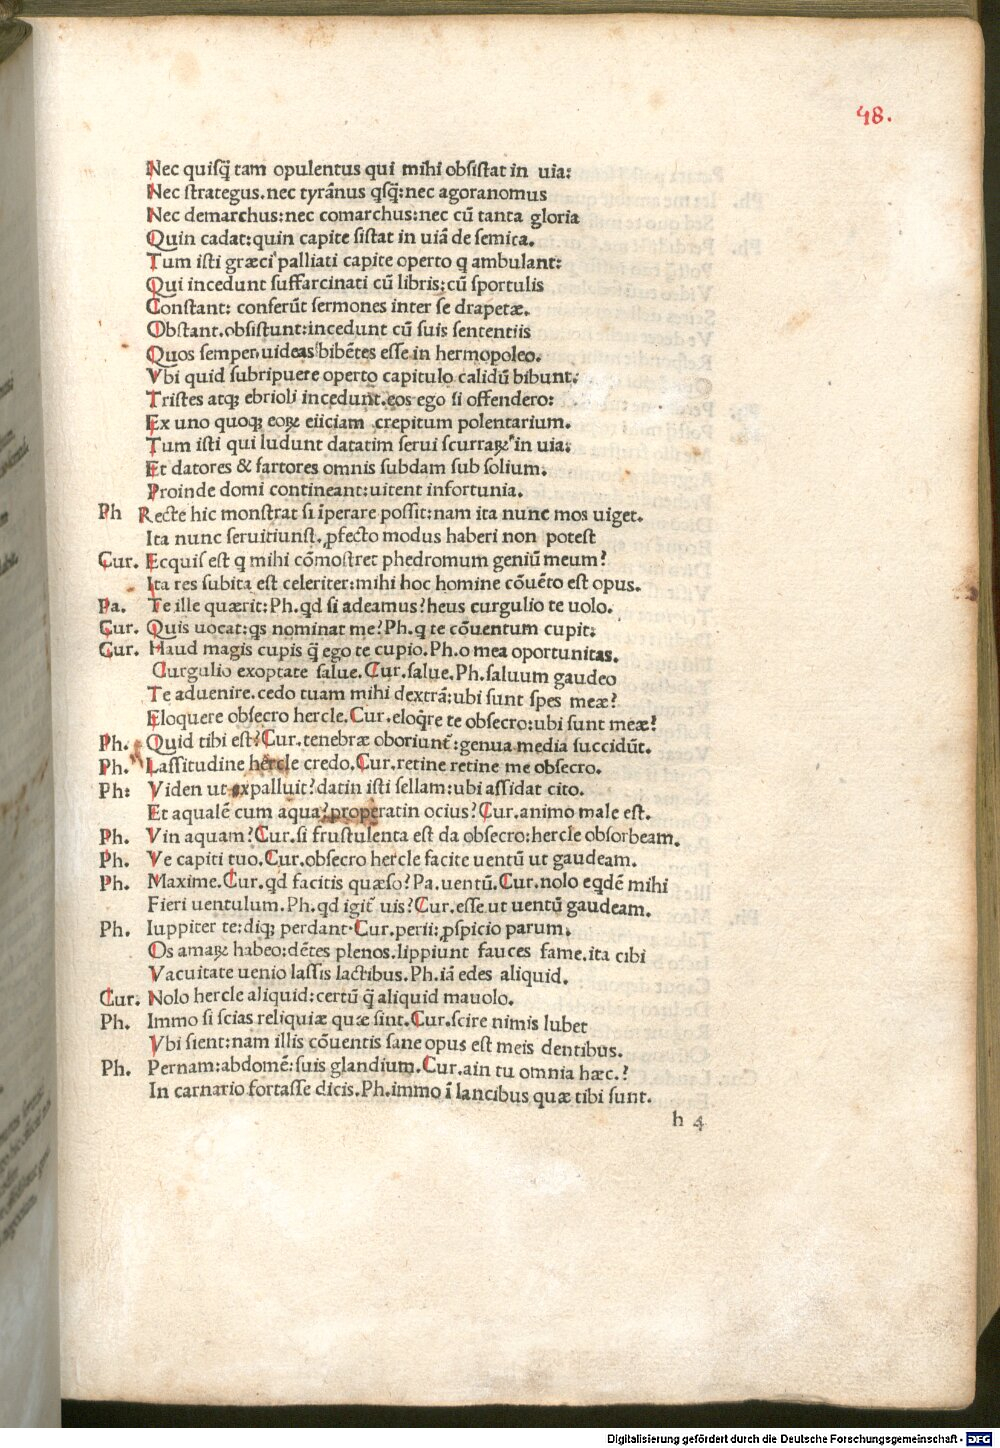 48.
Nec quisq̃ tam opulentus qui mihi obsistat in uia:
Nec strategus.nec tyrãnus qsq̃:nec agoranomus
Nec demarchus:nec comarchus:nec cũ tanta gloria
Quin cadat:quin capite sistat in uiã de semita.
Tum isti græci palliati capite operto q ambulant:
Qui incedunt suffarcinati cũ libris:cũ sportulis
Constant: conferũt sermones inter se drapetæ.
Obstant.obsistunt:incedunt cũ suis sententiis
Quos semper uideas bibẽtes esse in hermopoleo.
Vbi quid subripuere operto capitulo calidũ bibunt:
Tristes atqꝫ ebrioli incedunt.eos ego si offendero:
Ex uno quoqꝫ eoꝝ eiiciam crepitum polentarium.
Tum isti qui ludunt datatim serui scurraꝝ in uia:
Et datores & fartores omnis subdam sub solium.
Proinde domi contineant:uitent infortunia.
Ph Recte hic monstrat si ĩperare possit:nam ita nunc mos uiget.
Ita nunc seruitiunst.ꝓfecto modus haberi non potest
Cur. Ecquis est q mihi cõmostret phedromum geniũ meum?
Ita res subita est celeriter:mihi hoc homine cõuẽto est opus.
Pa. Te ille quærit:Ph.qd si adeamus?heus curgulio te uolo.
Cur. Quis uocat:qs nominat me?Ph.q te cõuentum cupit:
Cur. Haud magis cupis q̃ ego te cupio.Ph.o mea oportunitas.
Curgulio exoptate salue.Cur.salue.Ph.saluum gaudeo
Te aduenire.cedo tuam mihi dextrã:ubi sunt spes meæ?
Eloquere obsecro hercle.Cur.eloq̃re te obsecro:ubi sunt meæ?
Ph. Quid tibi est?Cur.tenebræ oboriunt̃:genua media succidũt.
Ph. Lassitudine hercle credo.Cur.retine retine me obsecro.
Ph: Viden ut expalluit?datin isti sellam:ubi assidat cito.
Et aqualẽ cum aqua?properatin ocius?Cur.animo male est.
Ph. Vin aquam?Cur.si frustulenta est da obsecro:hercle obsorbeam.
Ph. Ve capiti tuo.Cur.obsecro hercle facite uentũ ut gaudeam.
Ph. Maxime.Cur.qd facitis quæso?Pa.uentũ.Cur.nolo eqdẽ mihi
Fieri uentulum.Ph.qd igit̃ uis?Cur.esse ut uentũ gaudeam.
Ph. Iuppiter te:diqꝫ perdant.Cur.perii:ꝓspicio parum.
Os amaꝝ habeo:dẽtes plenos.lippiunt fauces fame.ita cibi
Vacuitate uenio lassis lactibus.Ph.iã edes aliquid.
Cur. Nolo hercle aliquid:certũ q̃ aliquid mauolo.
Ph. Immo si scias reliquiæ quæ sint.Cur.scire nimis lubet
Vbi sient:nam illis cõuentis sane opus est meis dentibus.
Ph. Pernam:abdomẽ:suis glandium.Cur.ain tu omnia hæc.?
In carnario fortasse dicis.Ph.immo ĩ lancibus quæ tibi sunt.
h 4
Digitalisierung gefördert durch die Deutsche Forschungsgemeinschaft - DFG